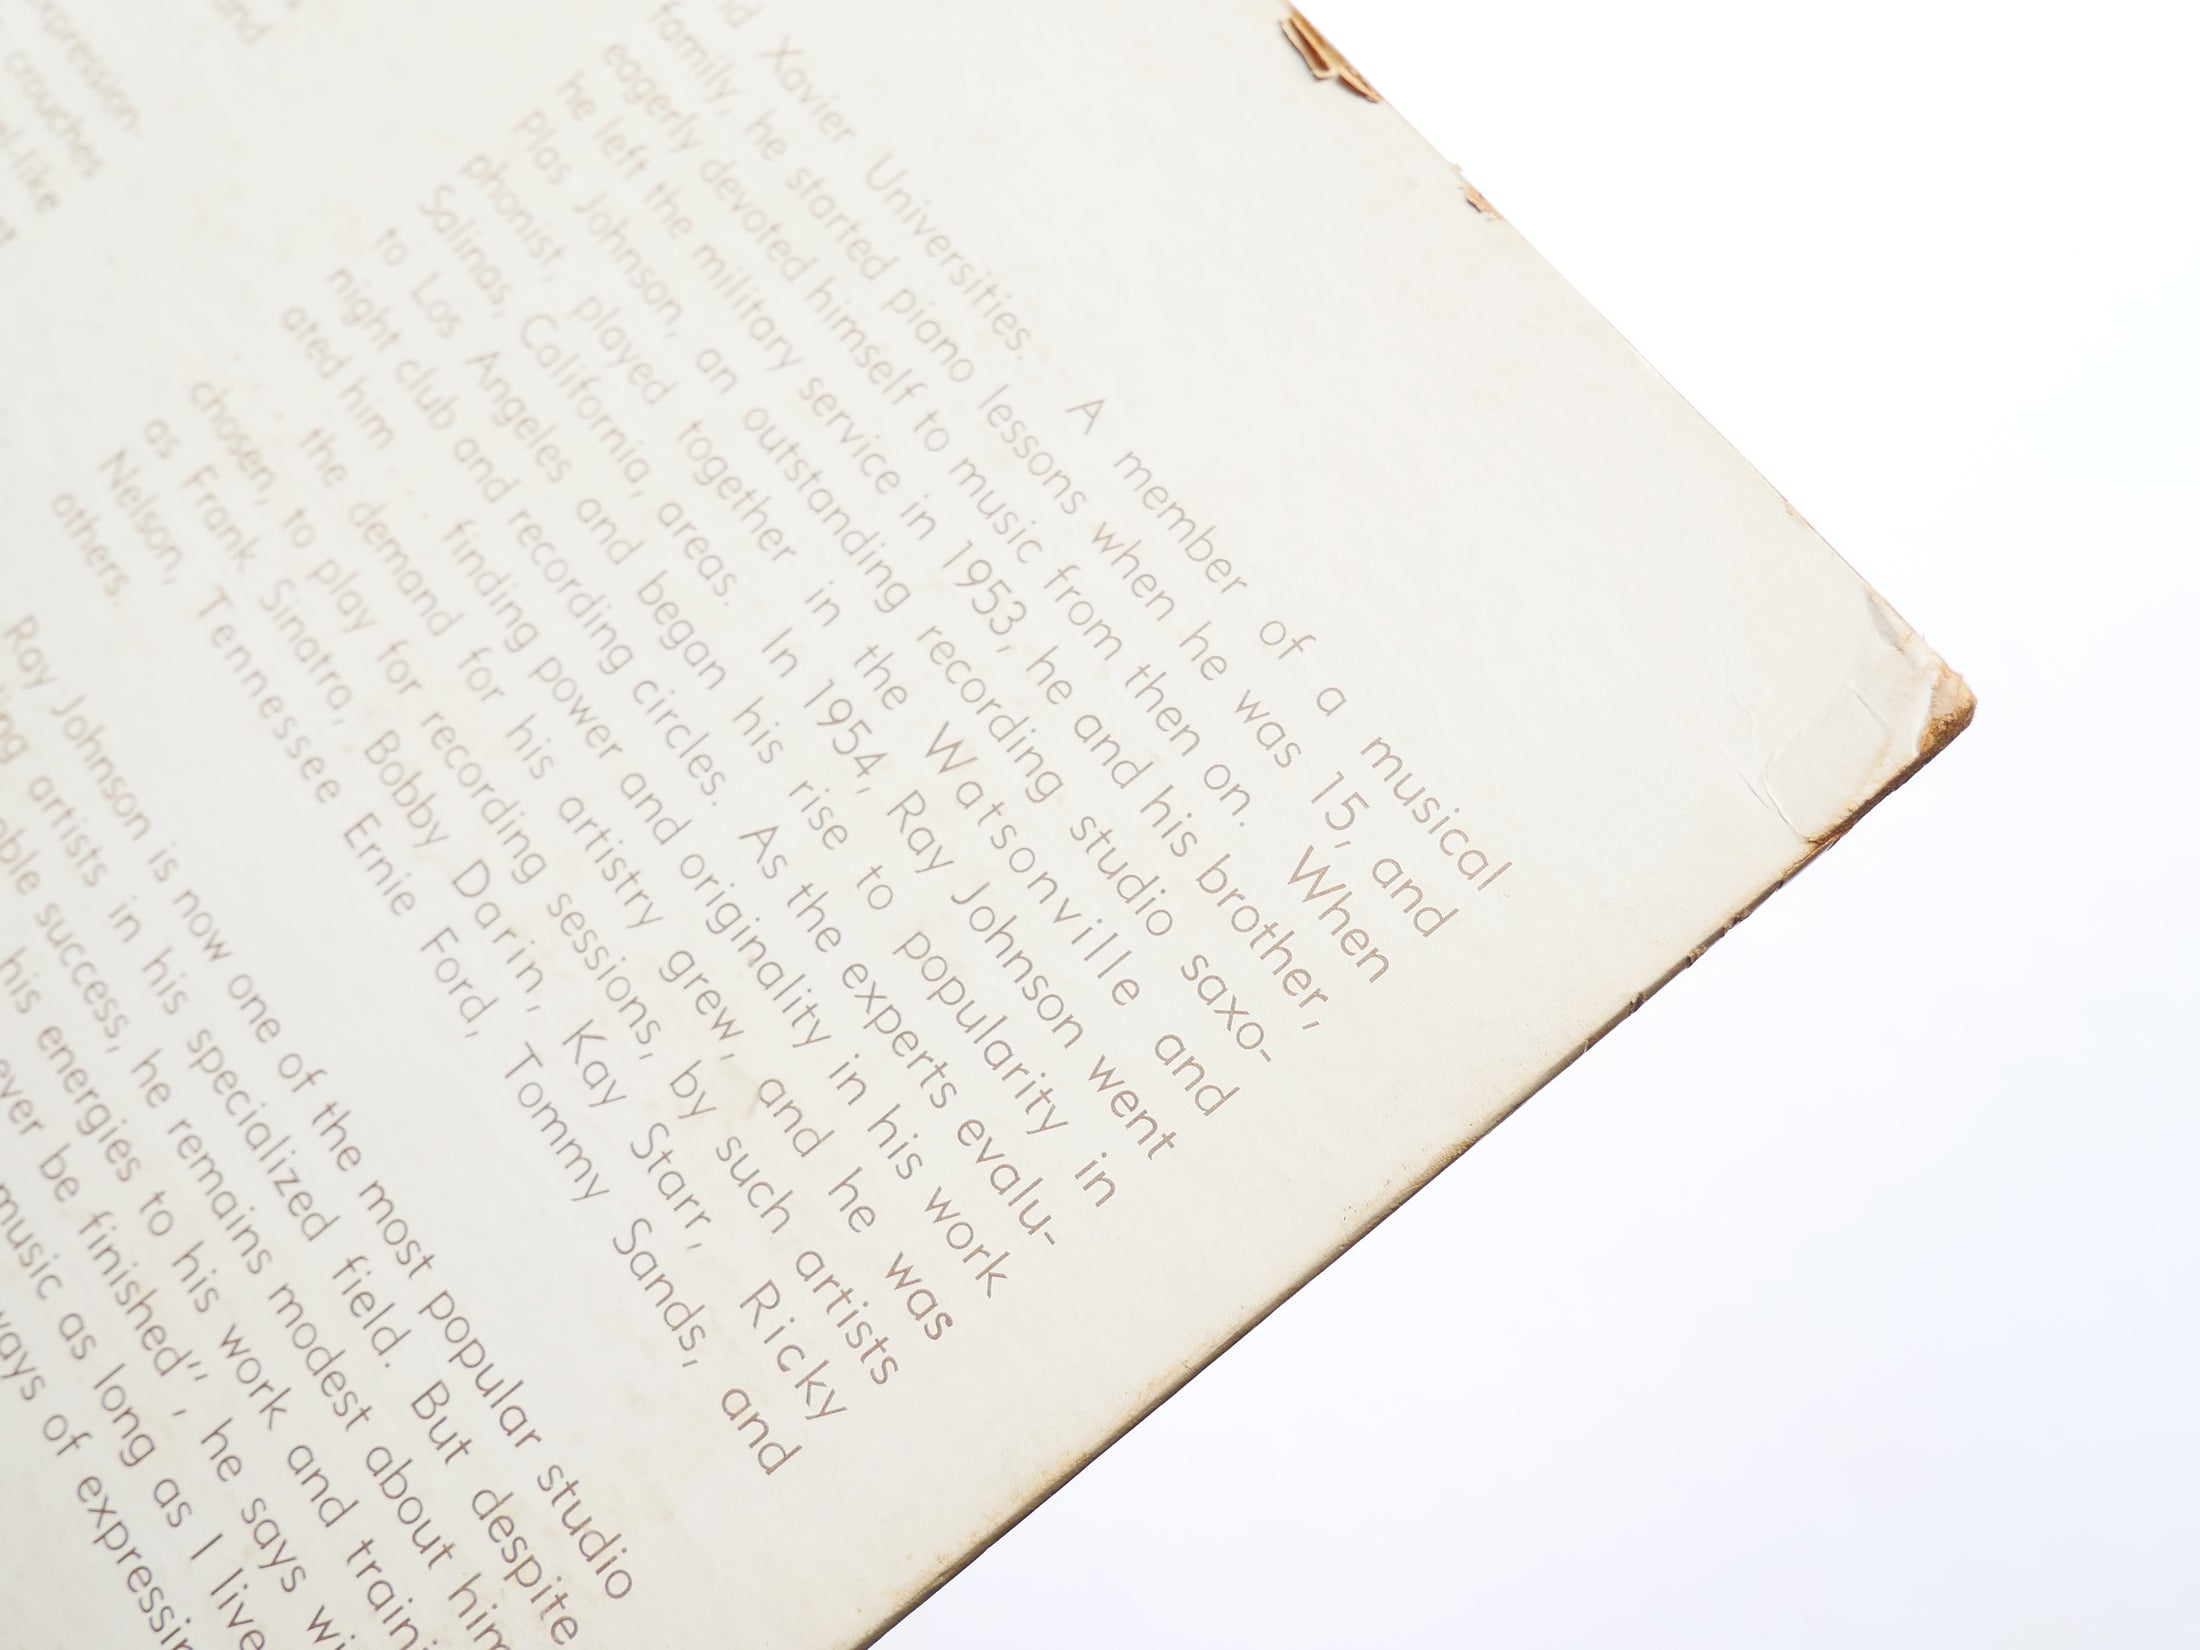 expression-
crouches
and
Xavier Universities. A member of a musical
family, he started piano lessons when he was 15, and
eagerly devoted himself to music from then on. When
he left the military service in 1953, he and his brother,
Plas Johnson, an outstanding recording studio saxo-
phonist, played together in the Watsonville and
Salinas, California, areas. In 1954, Ray Johnson went
to Los Angeles and began his rise to popularity in
night club and recording circles. As the experts evalu-
ated him . . . finding power and originality in his work
. . . the demand for his artistry grew, and he was
chosen, to play for recording sessions, by such artists
as Frank Sinatra, Bobby Darin, Kay Starr, Ricky
Nelson, Tennessee Ernie Ford, Tommy Sands, and
others.
Ray Johnson is now one of the most popular studio
artists in his specialized field. But despite
success, he remains modest about him
his energies to his work and traini
ever be finished", he says wi
music as long as I live
ways of expressin